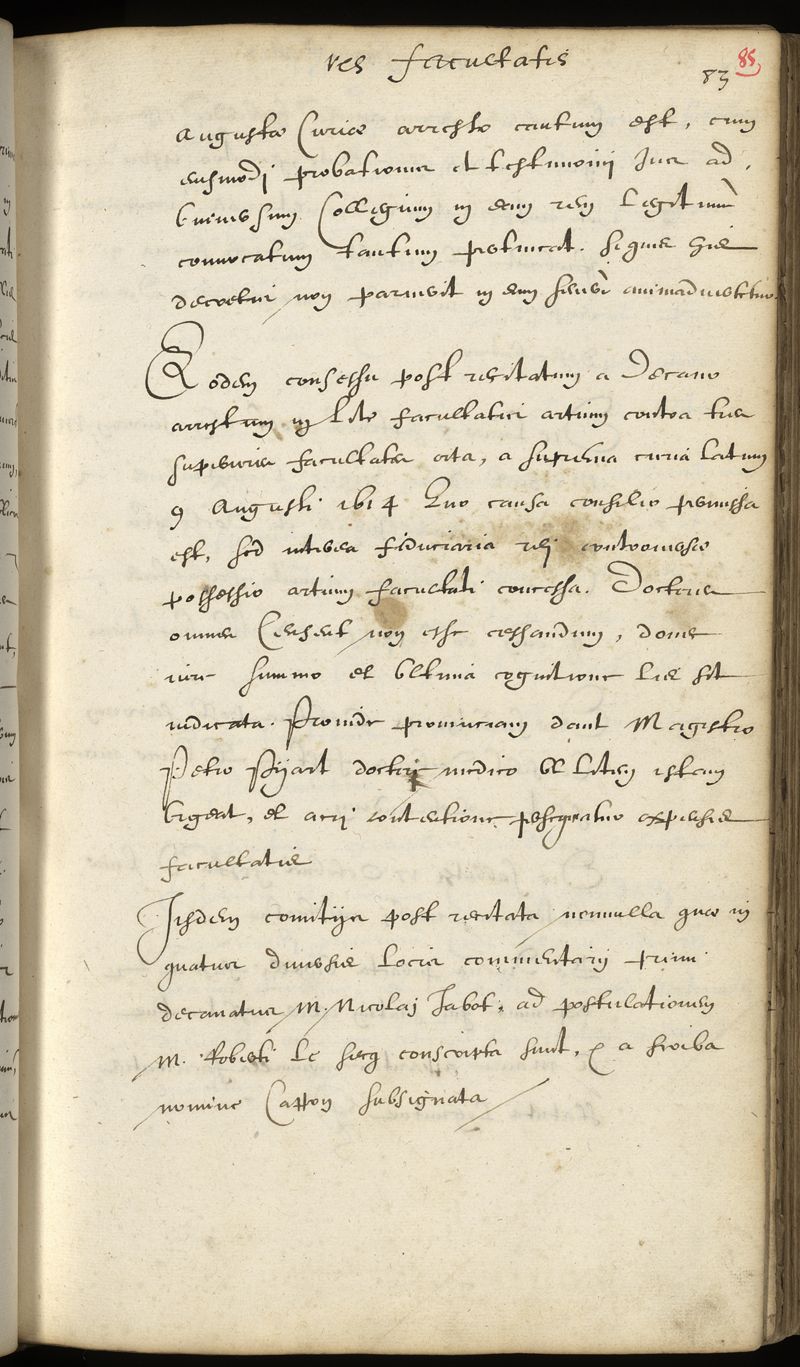 res facultatis
83 85
Augustæ Curiæ arresto cautum est, cum
eiusmodi probationis et testimonii Ius ad
universum Collegium in eam rem legitimè
convocatum tantum pertineat. si quis his
decretis non paruerit in eum severè animadvertetur.
Eodem consessu post recitatum a Decano
arrestum in lite facultatis artium contra tres
superiores facultates orta, a suprema curia latum
9 Augusti 1614 Quo causa consilio permissa
est, sed interea fiduciaria rei controversæ
possessio artium facultati concessa. Doctores
omnes Censent non esse cessandum, donec
iure summo et ultima cognitione lis sit
iudicata. Proinde provinciam dant Magistro
Petro Pijart doctori medico ut litem istam
urgeat, et acri contentione persequatur expensis
facultatis
Iisdem comitijs post recitata nonnulla quæ in
quatuor diversis locis commentarij primi
decanatus M. Nicolaj Jabot, ad postulationem
M. Roberti le secq conscripta sunt, & a scriba
nomine Cappon subsignata